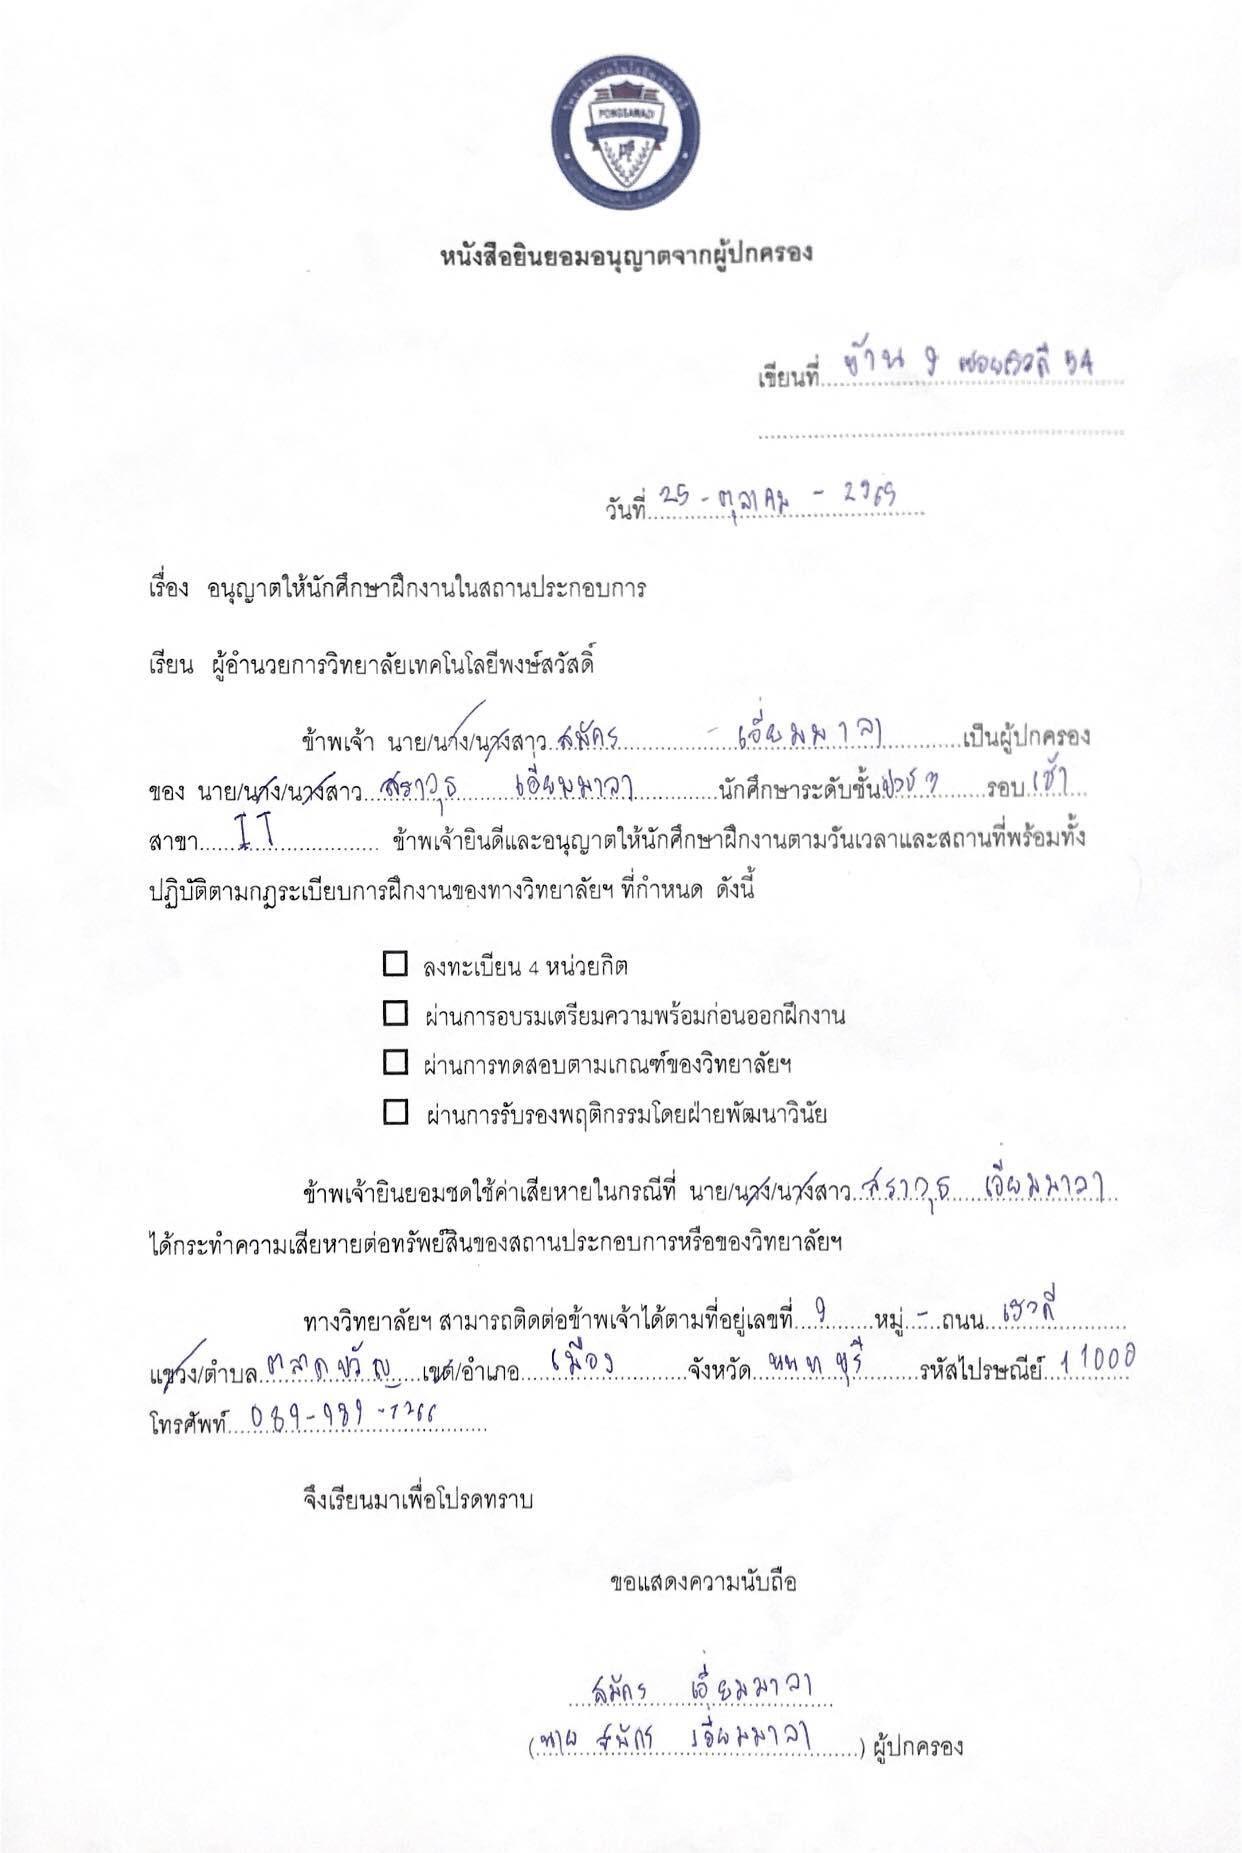 PONGSAWADI
หนังสือยินยอมอนุญาตจากผู้ปกครอง
เขียนที่ บ้าน 9 ซอยเรวดี 54
วันที่ 25 - ตุลาคม - 2565
เรื่อง อนุญาตให้นักศึกษาฝึกงานในสถานประกอบการ
เรียน ผู้อำนวยการวิทยาลัยเทคโนโลยีพงษ์สวัสดิ์
ข้าพเจ้า นาย/นาง/นางสาว สมัคร - เอี่ยมมาลา เป็นผู้ปกครอง
ของ นาย/นาง/นางสาว สราวุธ เอี่ยมมาลา นักศึกษาระดับชั้น ปวช 3 รอบ เช้า
สาขา IT ข้าพเจ้ายินดีและอนุญาตให้นักศึกษาฝึกงานตามวันเวลาและสถานที่พร้อมทั้ง
ปฏิบัติตามกฎระเบียบการฝึกงานของทางวิทยาลัยฯ ที่กำหนด ดังนี้
ลงทะเบียน 4 หน่วยกิต
ผ่านการอบรมเตรียมความพร้อมก่อนออกฝึกงาน
ผ่านการทดสอบตามเกณฑ์ของวิทยาลัยฯ
ผ่านการรับรองพฤติกรรมโดยฝ่ายพัฒนาวินัย
ข้าพเจ้ายินยอมชดใช้ค่าเสียหายในกรณีที่ นาย/นาง/นางสาว สราวุธ เอี่ยมมาลา
ได้กระทำความเสียหายต่อทรัพย์สินของสถานประกอบการหรือของวิทยาลัยฯ
ทางวิทยาลัยฯ สามารถติดต่อข้าพเจ้าได้ตามที่อยู่เลขที่ 9 หมู่ - ถนน เรวดี
แขวง/ตำบล ตลาดขวัญ เขต/อำเภอ เมือง จังหวัด นนทบุรี รหัสไปรษณีย์ 11000
โทรศัพท์
จึงเรียนมาเพื่อโปรดทราบ
ขอแสดงความนับถือ
สมัคร เอี่ยมมาลา
(นาย สมัคร เอี่ยมมาลา) ผู้ปกครอง